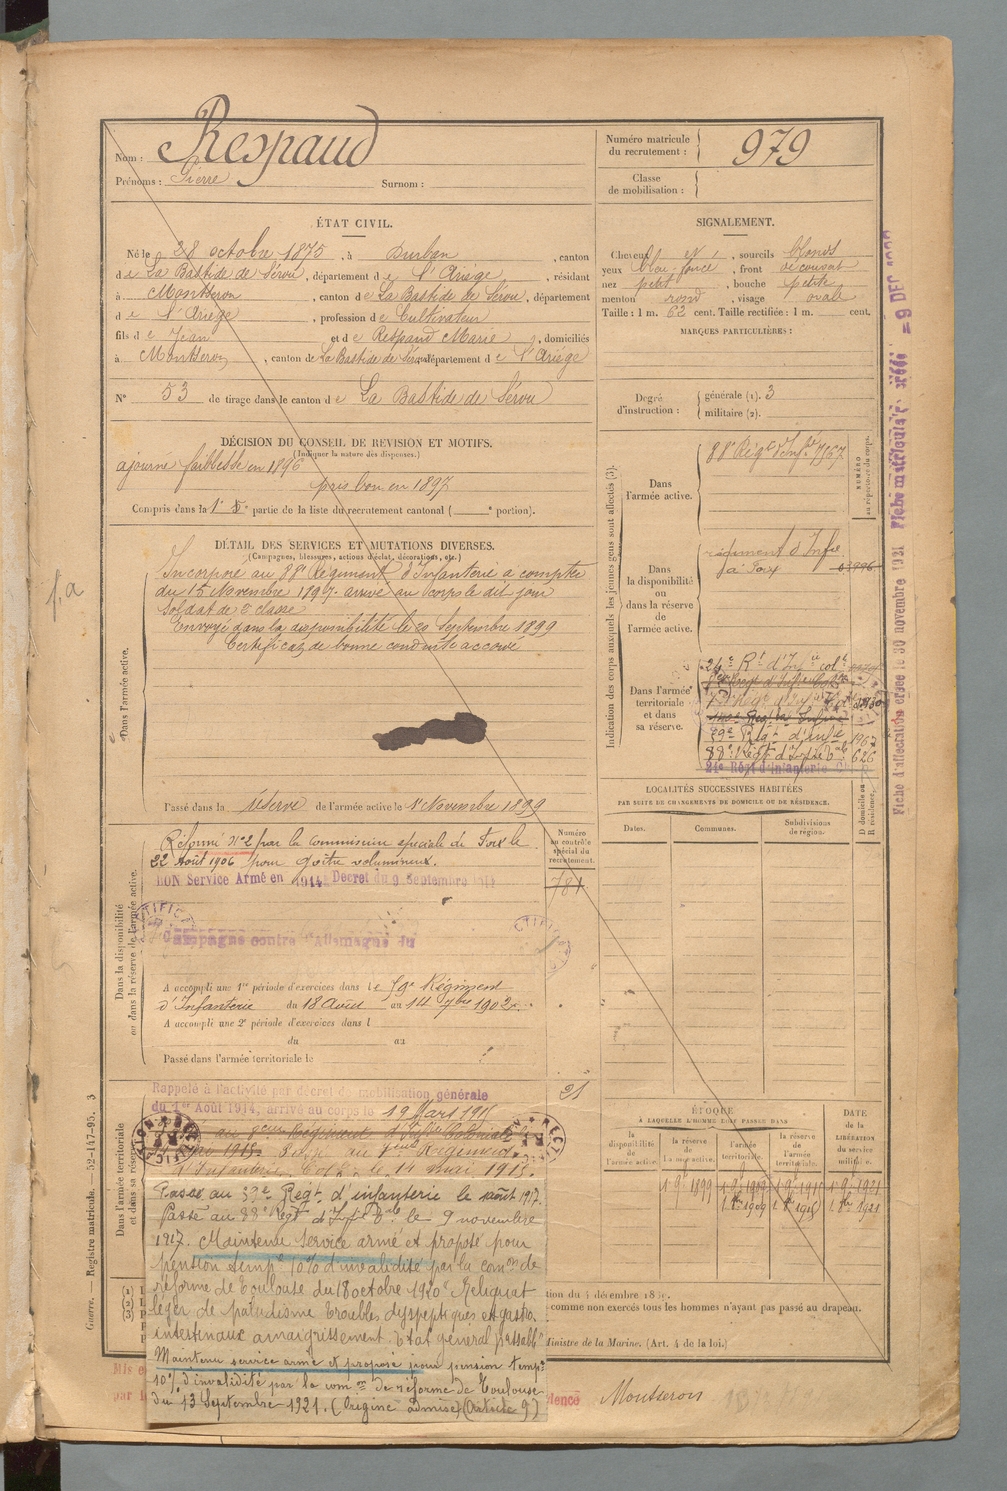 Nom : Respaud
Prénoms : Pierre Surnom :
Numéro matricule du recrutement : 979
Classe de mobilisation :
ÉTAT CIVIL.
Né le 28 octobre 1875, à Durban, canton
de La Bastide de Sérou, département de l'Ariège, résidant
à Montseron, canton de La Bastide de Sérou, département
de l'Ariège, profession de Cultivateur
fils de Jean et de Respaud Marie, domiciliés
à Montseron, canton de La Bastide de Sérou département de l'Ariège
N° 53 de tirage dans le canton de La Bastide de Sérou
SIGNALEMENT.
Cheveux, sourcils blonds
yeux bleu foncé, front découvert
nez petit, bouche petite
menton rond, visage ovale
Taille : 1 m. 62 cent. Taille rectifiée : 1 m. cent.
MARQUES PARTICULIÈRES :
Degré d'instruction : générale (1). 3
militaire (2).
DÉCISION DU CONSEIL DE REVISION ET MOTIFS.
(Indiquer la nature des dispenses.)
ajourné faiblesse en 1896
pris bon en 1897
Compris dans la partie de la liste du recrutement cantonal ( portion).
DÉTAIL DES SERVICES ET MUTATIONS DIVERSES.
(Campagnes, blessures, actions d'éclat, décorations, etc.)
Incorporé au 88e Régiment d'Infanterie à compter
du 15 Novembre 1897 arrivé au corps le dit jour
soldat de 2e classe
Envoyé dans la disponibilité le 20 Septembre 1899
Certificat de bonne conduite accordé
Dans l'armée active.
Passé dans la réserve de l'armée active le 1 Novembre 1899
Indication des corps auxquels les jeunes gens sont affectés (3).
NUMÉRO au répertoire du corps.
Dans l'armée active.
88e Régt d'Infie 7367
Dans la disponibilité ou dans la réserve de l'armée active.
régiment d'Infie
à Foix
Dans l'armée territoriale et dans sa réserve.
24e Rt d'Infie colle
39e Régt d'Infie 1967
88e Régt d'Infie Tale 626
21e Régt d'Infanterie
LOCALITÉS SUCCESSIVES HABITÉES
PAR SUITE DE CHANGEMENTS DE DOMICILE OU DE RÉSIDENCE.
Dates. Communes. Subdivisions de région.
D domicile ou R résidence.
Dans la disponibilité ou dans la réserve de l'armée active.
Réformé N°2 par la Commission spéciale de Foix le
22 Août 1906 pour goitre volumineux.
BON Service Armé en 1914 Décret du 9 Septembre 1914
Campagne contre l'Allemagne du
Numéro au contrôle spécial du recrutement.
781
A accompli une 1re période d'exercices dans le 59e Régiment
d'Infanterie du 18 Août au 14 7bre 1902
A accompli une 2e période d'exercices dans l
du au
Passé dans l'armée territoriale le
21
Dans l'armée territoriale et dans sa réserve
Rappelé à l'activité par décret de mobilisation générale
du 1er Août 1914, arrivé au corps le 19 Mars 1915
au Régiment d'Infie Coloniale
d'Infanterie Cole le 14 mai 1915.
Passé au 39e Régt d'infanterie le août 1917.
Passé au 88e Régt d'Infie Tale le 9 novembre
1917. Maintenu service armé et proposé pour
pension tempre 10% d'invalidité par la comon de
réforme de Toulouse du 18 octobre 1920 "Reliquat
léger de paludisme troubles dyspeptiques et gastro
intestinaux amaigrissement. Etat général passable"
Maintenu service armé et proposé pour pension tempre
10% d'invalidité par la comon de réforme de Toulouse
du 13 Septembre 1921. (Origine admise) (Article 9)
ÉPOQUE
À LAQUELLE L'HOMME DOIT PASSER DANS
la disponibilité de l'armée active. la réserve de l'armée active. l'armée territoriale. la réserve de l'armée territoriale.
DATE DE LA LIBÉRATION du service militaire.
1 9bre 1899
Ministre de la Marine. (Art. 4 de la loi.)
comme non exercés tous les hommes n'ayant pas passé au drapeau.
Montseron
Guerre. — Registre matricule. — 52-147-95. 3
Fiche d'affectation créée le 30 novembre 1921